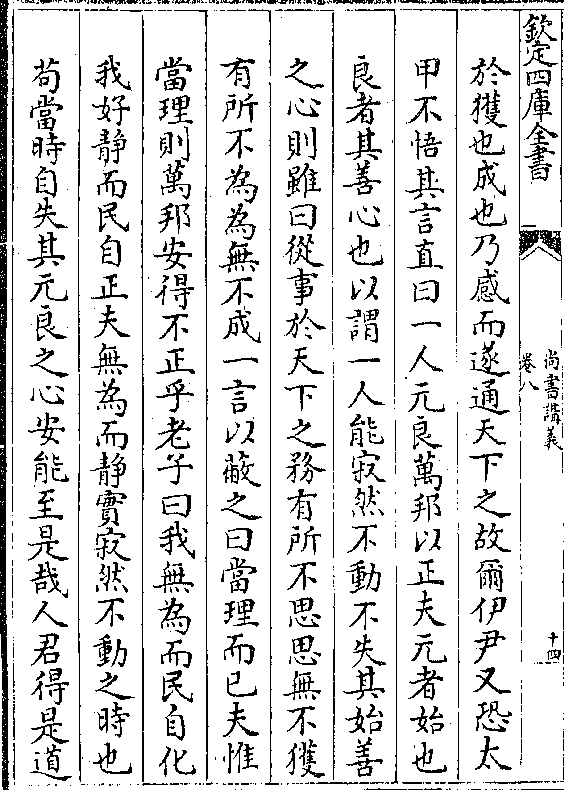 欽定四庫全書
尚書講義
卷八
十四
於獲也成也乃感而遂通天下之故爾伊尹又恐太
甲不悟其言直曰一人元良萬邦以正夫元者始也
良者其善心也以謂一人能寂然不動不失其始善
之心則雖曰從事於天下之務有所不思思無不獲
有所不為為無不成一言以蔽之曰當理而已夫惟
當理則萬邦安得不正乎老子曰我無為而民自化
我好静而民自正夫無為而静實寂然不動之時也
苟當時自失其元良之心安能至是哉人君得是道